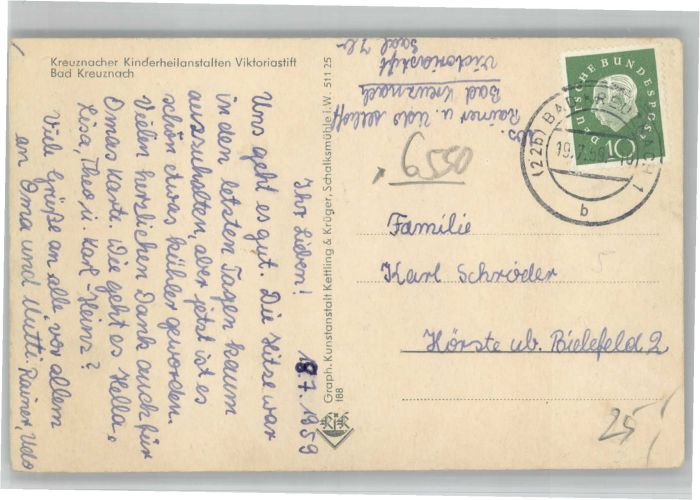 Kreuznacher Kinderheilanstalten Viktoriastift
Bad Kreuznach
18.7.1959
Ihr Lieben!
Uns geht es gut. Die Hitze war
in den letzten Tagen kaum
auszuhalten, aber jetzt ist es
schön etwas kühler geworden.
Vielen herzlichen Dank auch für
Omas Karte. Wie geht es Hella,
Lisa, Theo, u. Karl-Heinz?
Viele Grüße an alle, vor allem
an Oma und Mutti. Rainer, Udo
Graph. Kunstanstalt Kettling & Krüger, Schalksmühle i.W. 511 25
188
Rainer u. Udo
Bad Kreuznach
Viktoriastift
Saal
DEUTSCHE BUNDESPOST
10
(22b) BAD KREUZNACH 1
19.7.59
b
6550
Familie
Karl Schröder
Hörste üb. Bielefeld 2
5
25